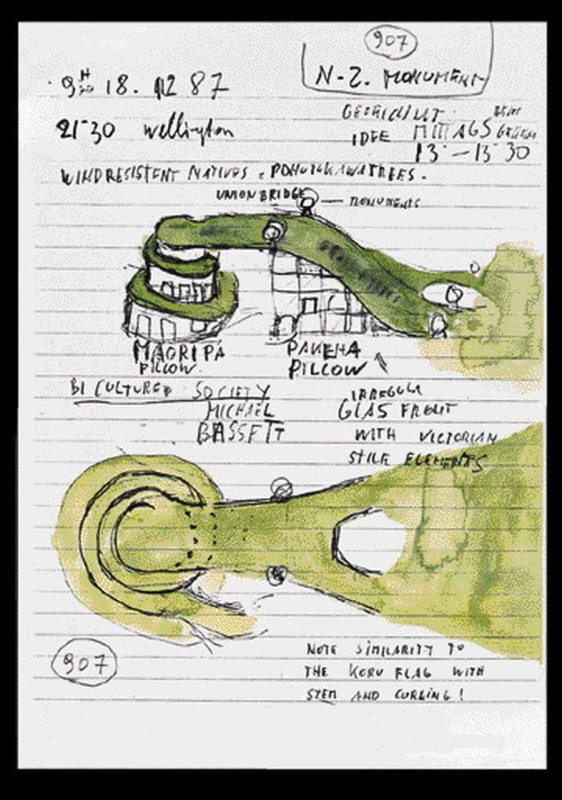 907
N-Z. MONUMENT
18. 12 87
21·30 wellington
IDEE MITTAGS
13 — 13 30
WINDRESISTENT NATIVES
UNION BRIDGE
MONUMENTS
MAORI PA
PILLOW
PAKEHA
PILLOW
BI CULTURE SOCIETY
MICHAEL
BASSETT
IRREGULAR
GLAS FRONT
WITH VICTORIAN
STILE ELEMENTS
907
NOTE SIMILARITY TO
THE KORU FLAG WITH
STEM AND CURLING!